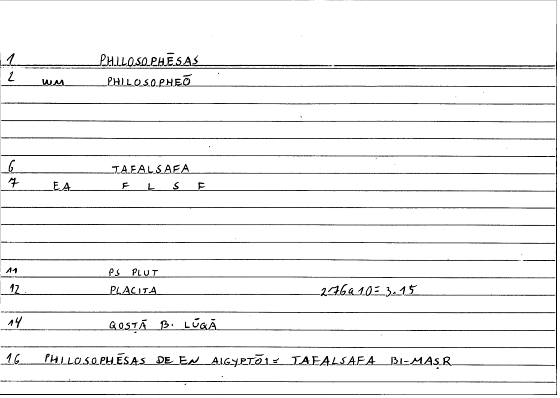 1 PHILOSOPHĒSAS
2 WM PHILOSOPHEŌ
6 TAFALSAFA
7 EA F L S F
11 PS PLUT
12 PLACITA 276a10 = 3.15
14 QOSṬĀ B. LŪQĀ
16 PHILOSOPHĒSAS DE EN AIGYPTŌI = TAFALSAFA BI-MAṢR